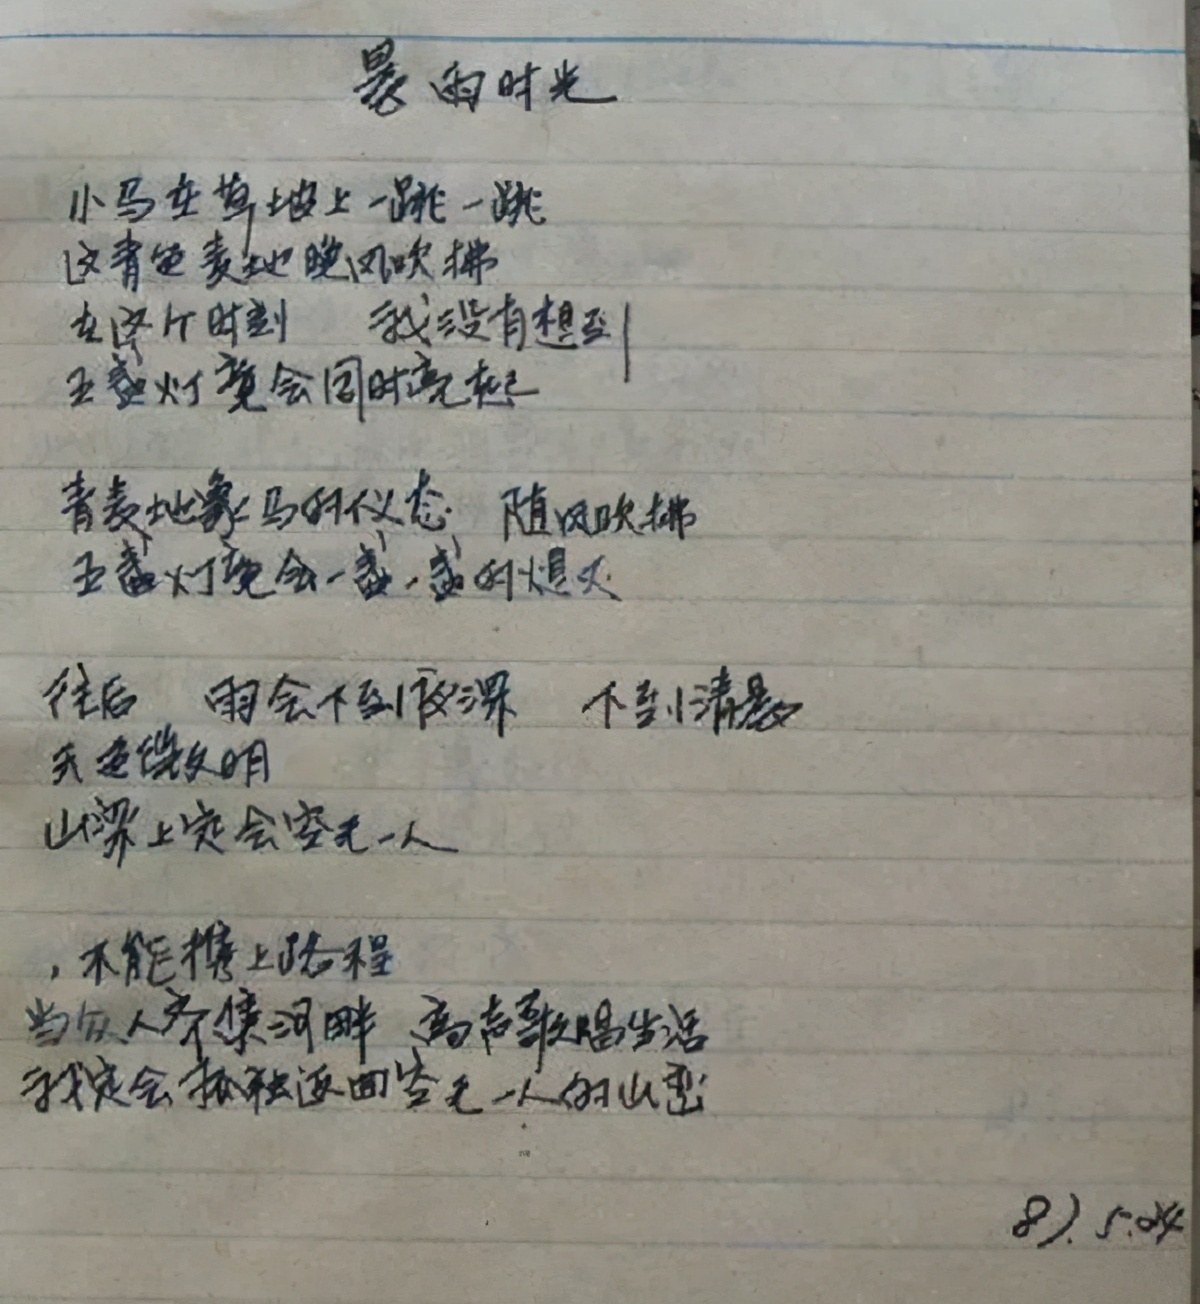 晨雨时光
小马在草坡上一跳一跳
这青色麦地晚风吹拂
在这个时刻 我没有想到
五盏灯竟会同时亮起
青麦地象马的仪态 随风吹拂
五盏灯竟会一盏一盏的熄灭
往后 雨会下到深夜 下到清晨
天色微明
山梁上定会空无一人
不能携上路程
当众人齐集河畔 高声歌唱生活
我定会孤独返回空无一人的山峦